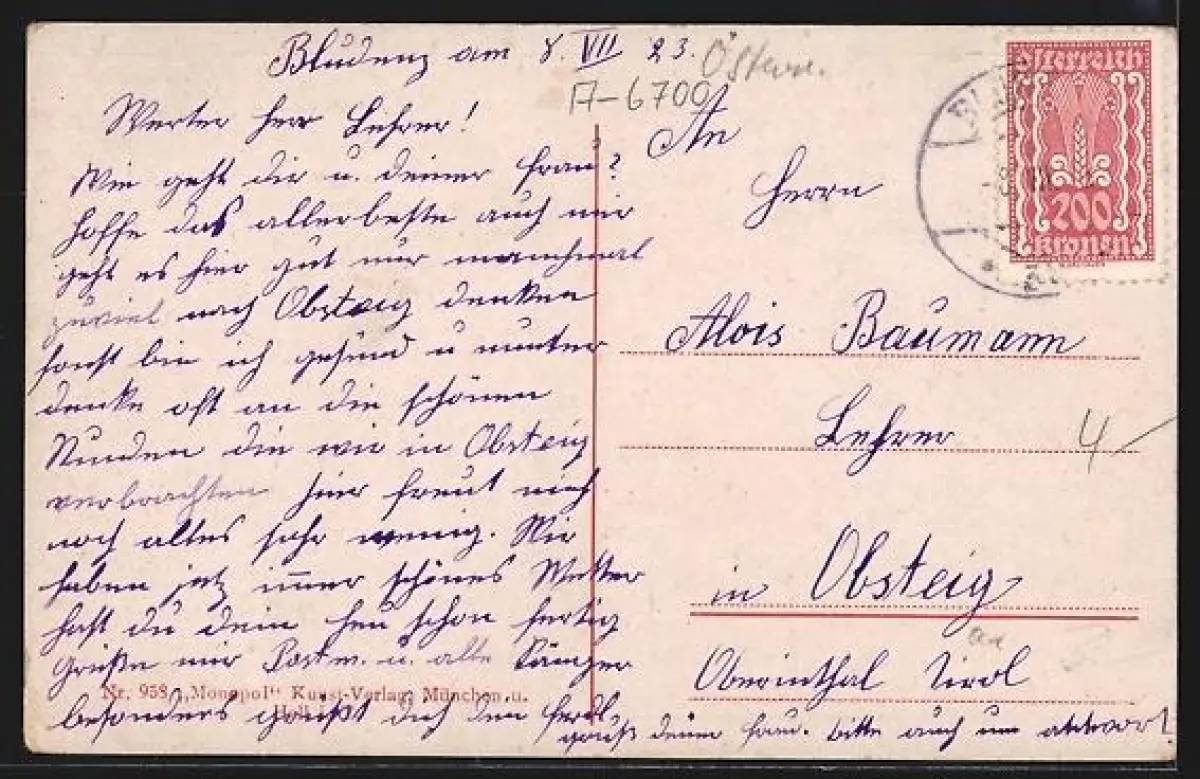 Bludenz am 8. VII 23.
Österr.
A-6700
Werter Herr Lehrer!
Wie geht dir u. deiner Frau?
hoffe das allerbeste auch mir
geht es hier gut nur manchmal
zuviel nach Obsteig denken
sonst bin ich gesund u munter
denke oft an die schönen
Stunden die wir in Obsteig
verbrachten hier freut mich
noch alles sehr wenig. Wir
haben jetz immer schönes Wetter
hast du dein Heu schon fertig
Grüße mir Postm. u. alle Sänger
besonders grüßt dich den Ferdl
gruß deiner Frau. bitte auch um antwort
Nr. 958 „Monopol“ Kunst-Verlag, München u.
An
Herrn
Alois Baumann
Lehrer
4
in Obsteig
Oberinthal Tirol
Österreich
200
Kronen